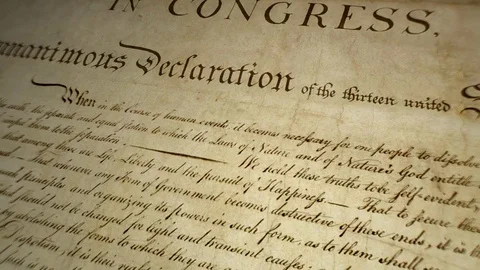 IN CONGRESS,
unanimous Declaration of the thirteen united S
When in the Course of human events, it becomes necessary for one people to dissolve
the earth, the separate and equal station to which the Laws of Nature and of Nature's God entitle
to the separation. We hold these truths to be self-evident,
that among these are Life, Liberty and the pursuit of Happiness.— That to secure these
— That whenever any Form of Government becomes destructive of these ends, it is the
such principles and organizing its powers in such form, as to them shall
should not be changed for light and transient causes;
by abolishing the forms to which they are
Despotism, it is their right
Such is